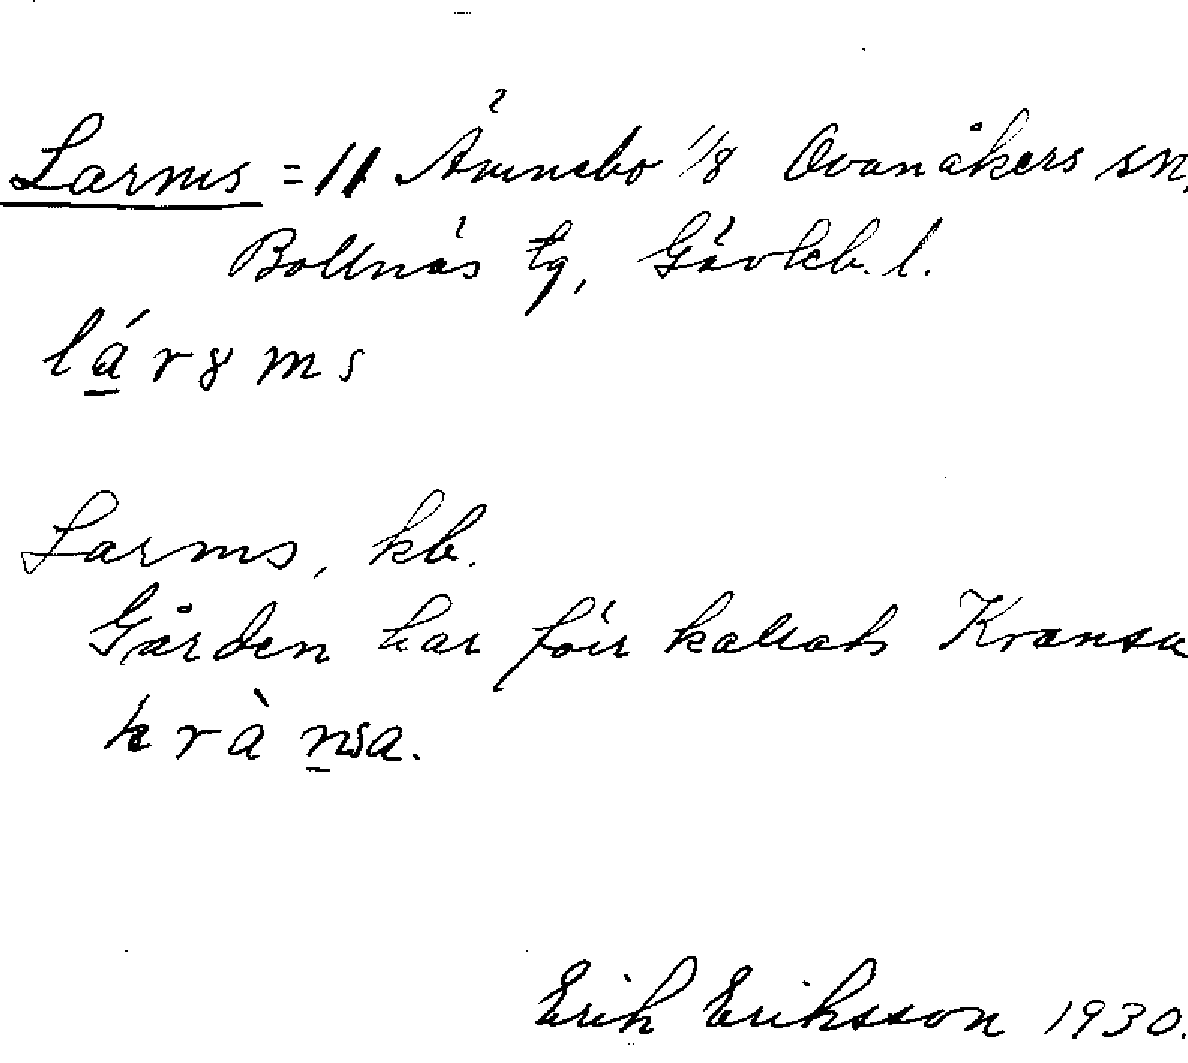 Larms = 11 Ämnebo 1/8 Ovanåkers sn,
Bollnäs tg, Gävleb. l.
lárɣms
Larms, kb.
Gården har förr kallats Kransa
krànsa.
Erik Eriksson 1930.